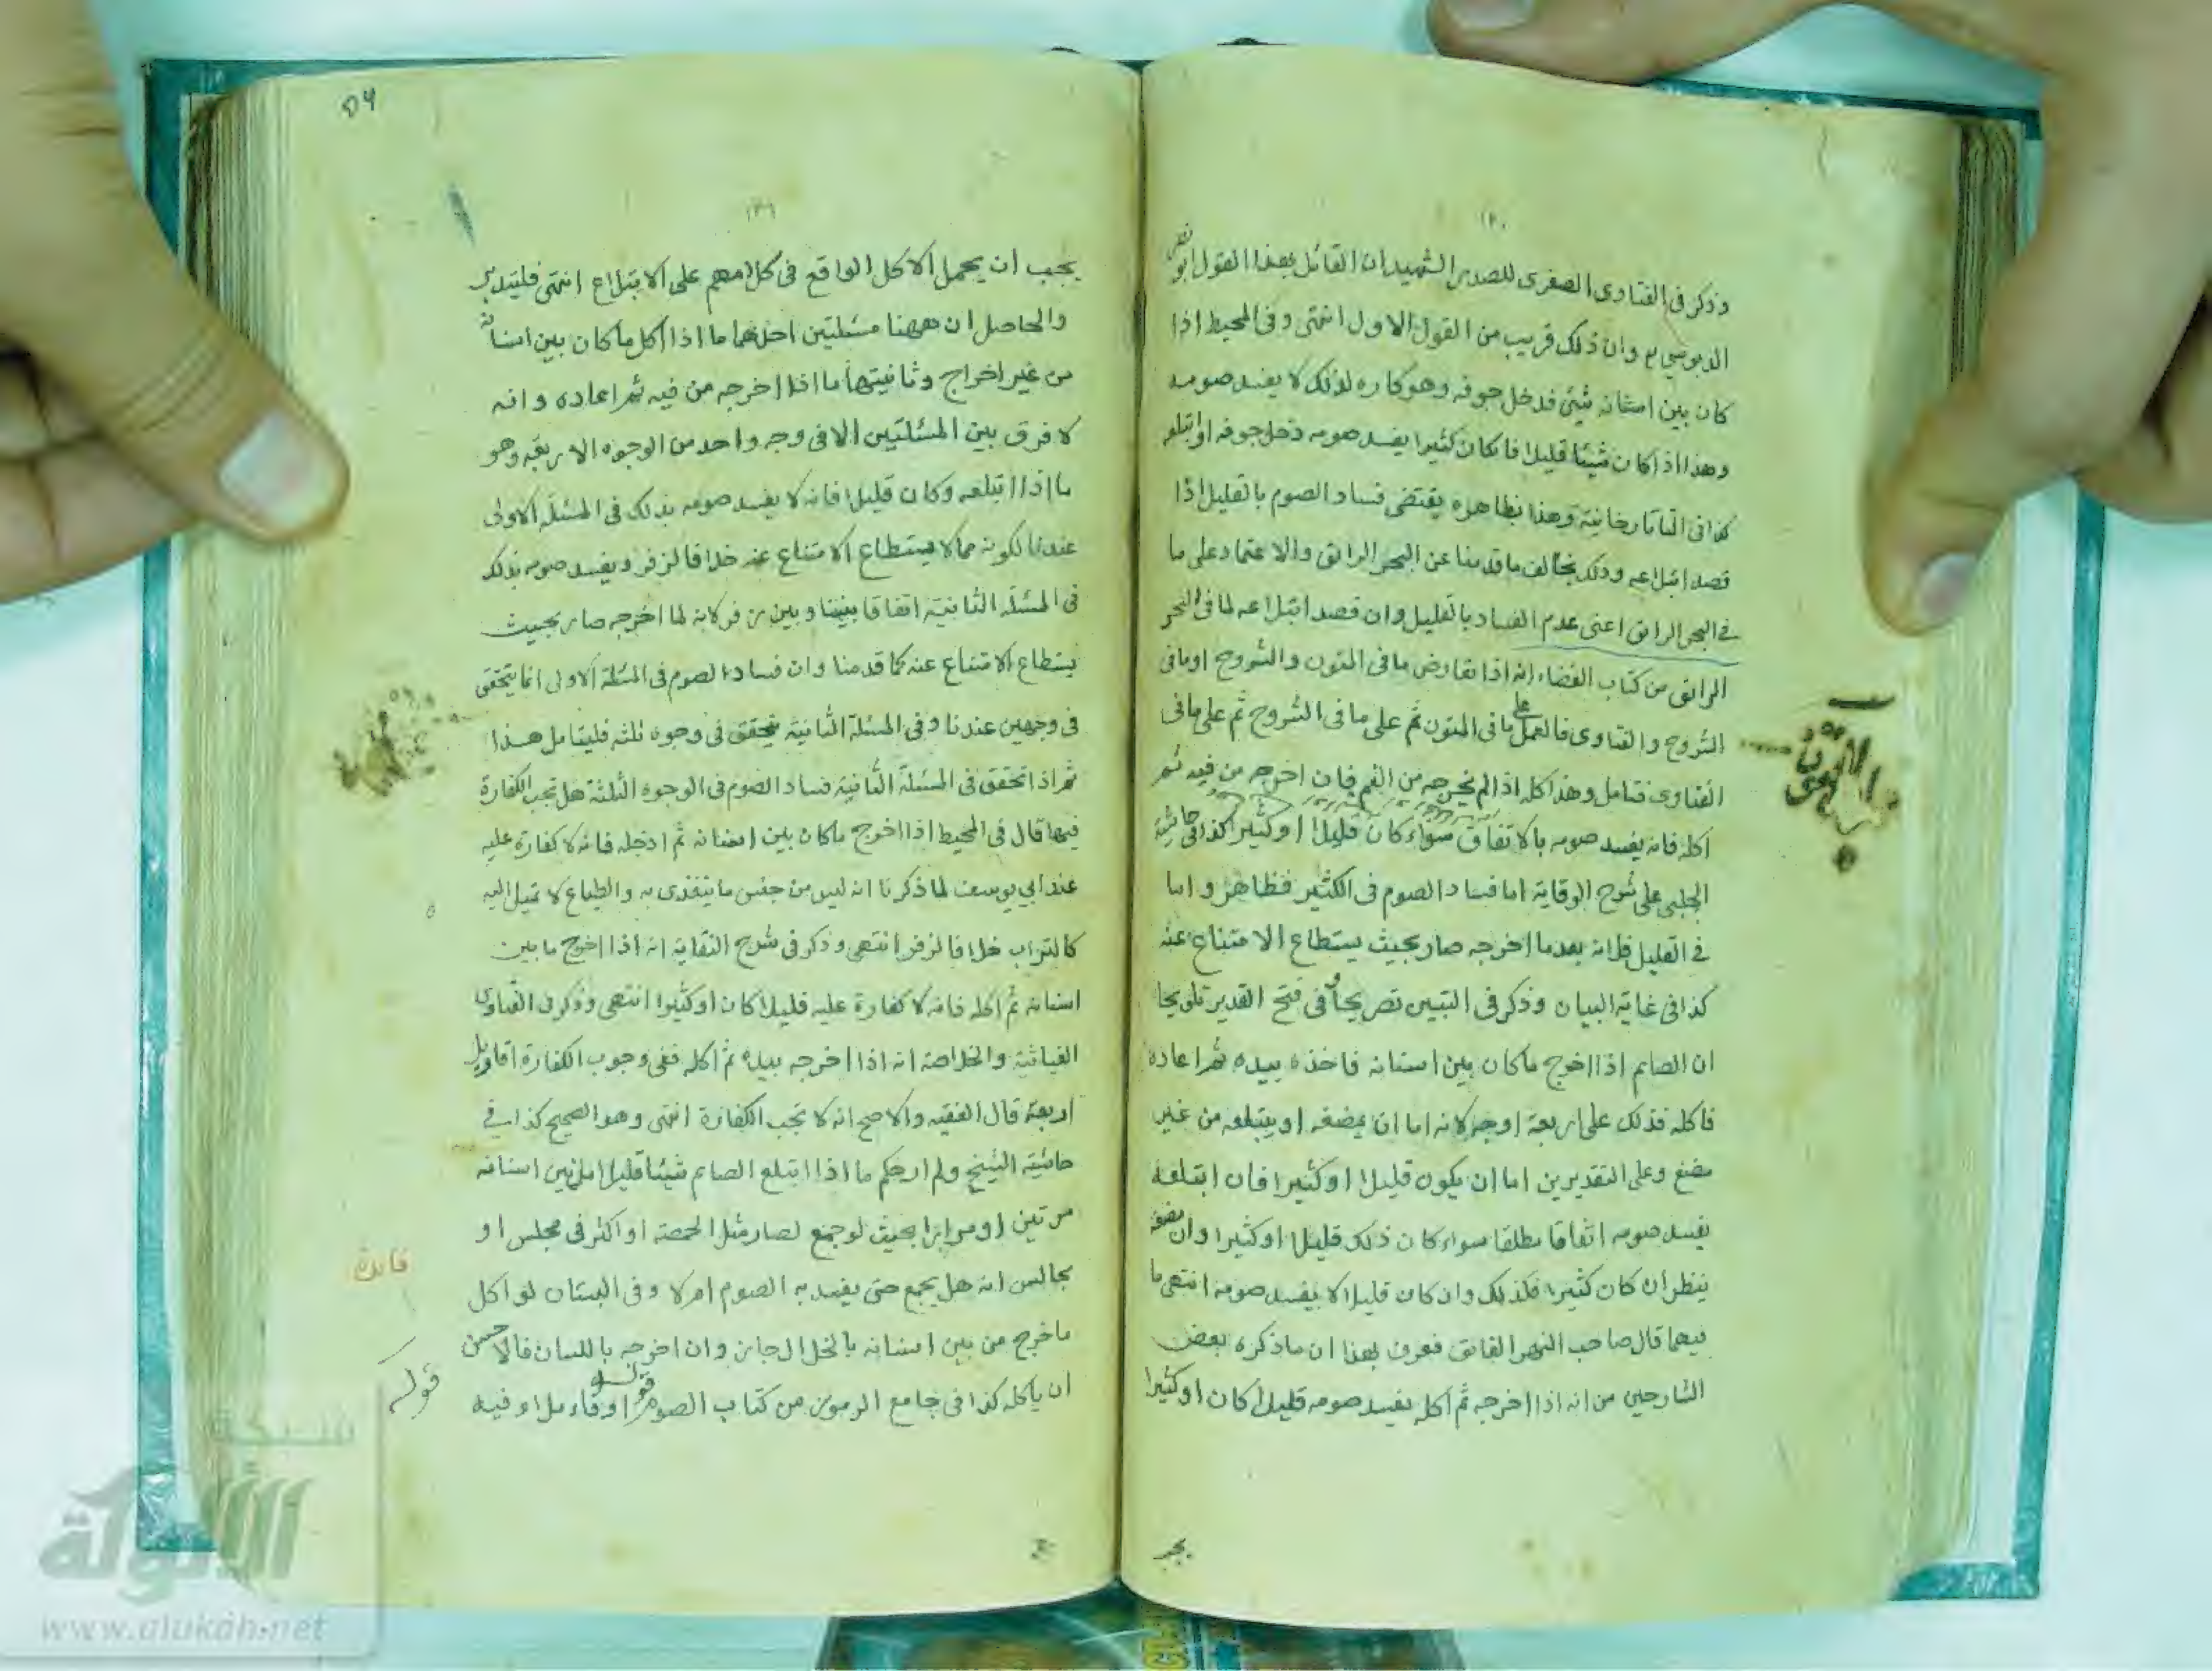 ١٢٠
وذكر فى الفتاوى الصغرى للصدر الشهيد ان القائل بهذا القول ابو نصر
الدبوسي وان ذلك قريب من القول الاول انتهى وفى المحيط اذا
كان بين اسنانه شئ فدخل جوفه وهو كاره لذلك لا يفسد صومه
وهذا اذا كان شيئا قليلا فان كان كثيرا يفسد صومه دخل جوفه او ابتلعه
كذا فى التاتارخانية وهذا بظاهره يقتضى فساد الصوم بالقليل اذا
قصد ابتلاعه وذلك يخالف ما قدمنا عن البحر الرائق والاعتماد على ما
فى البحر الرائق اعنى عدم الفساد بالقليل وان قصد ابتلاعه لما فى البحر
الرائق من كتاب القضاء انه اذا تعارض ما فى المتون والشروح او ما فى
الشروح والفتاوى فالعمل على ما فى المتون ثم على ما فى الشروح ثم على ما فى
الفتاوى فتامل وهذا كله اذا لم يخرجه من الفم فان اخرجه من فيه ثم
اكله فانه يفسد صومه بالاتفاق سواء كان قليلا او كثيرا كذا فى حاشية
الچلبى على شرح الوقاية اما فساد الصوم فى الكثير فظاهر واما
فى القليل فلانه بعدما اخرجه صار بحيث يستطاع الامتناع عنه
كذا فى غاية البيان وذكر فى التبيين تصريحا وفى فتح القدير تلويحا
ان الصائم اذا اخرج ما كان بين اسنانه فاخذه بيده ثم اعاده
فاكله فذلك على اربعة اوجه لانه اما ان يمضغه او يبتلعه من غير
مضغ وعلى التقديرين اما ان يكون قليلا او كثيرا فان ابتلعه
يفسد صومه اتفاقا مطلقا سواء كان ذلك قليلا او كثيرا وان مضغه
ينظر ان كان كثيرا فكذلك وان كان قليلا لا يفسد صومه انتهى ما
فيهما قال صاحب النهر الفائق فعرف بهذا ان ما ذكره بعض
الشارحين من انه اذا اخرجه ثم اكله يفسد صومه قليلا كان او كثيرا
يجب
٥٦
١٢١
يجب ان يحمل الاكل الواقع فى كلامهم على الابتلاع انتهى فليتدبر
والحاصل ان ههنا مسئلتين احدٰهما ما اذا اكل ما كان بين اسنانه
من غير اخراج وثانيتهما ما اذا اخرجه من فيه ثم اعاده وانه
لا فرق بين المسئلتين الا فى وجه واحد من الوجوه الاربعة وهو
ما اذا ابتلعه وكان قليلا فانه لا يفسد صومه بذلك فى المسئلة الاولى
عندنا لكونه مما لا يستطاع الامتناع عنه خلافا لزفر ويفسد صومه بذلك
فى المسئلة الثانية اتفاقا بيننا وبين زفر لانه لما اخرجه صار بحيث
يستطاع الامتناع عنه كما قدمنا وان فساد الصوم فى المسئلة الاولى انما يتحقق
فى وجهين عندنا وفى المسئلة الثانية يتحقق فى وجوه ثلثه فليتامل هذا
ثم اذا تحقق فى المسئلة الثانية فساد الصوم فى الوجوه الثلثة هل تجب الكفارة
فيها قال فى المحيط اذا اخرج ما كان بين اسنانه ثم ادخله فانه لا كفارة عليه
عند ابي يوسف لما ذكرنا انه ليس من جنس ما يتغذى به والطباع لا تميل اليه
كالتراب خلافا لزفر انتهى وذكر فى شرح النقاية انه اذا اخرج ما بين
اسنانه ثم اكله فانه لا كفارة عليه قليلا كان او كثيرا انتهى وذكر فى الفتاوى
الغياثية والخلاصة انه اذا اخرجه بيده ثم اكله ففى وجوب الكفارة اقاويل
اربعة قال الفقيه والاصح انه لا تجب الكفارة انتهى وهو الصحيح كذا فى
حاشية الشيخ ولم ار حكم ما اذا ابتلع الصائم شيئا قليلا من بين اسنانه
مرتين او مرارا بحيث لو جمع لصار مثل الحمصة او اكثر فى مجلس او
فائدة
مجالس انه هل يجمع حتى يفسد به الصوم ام لا وفى البستان لو اكل
ما خرج من بين اسنانه بالخلال جاز وان اخرجه باللسان فالاحسن
ان ياكله كذا فى جامع الرموز من كتاب الصوم قوله او قاء ملأ فيه
قوله
شبكة
الألوكة
www.alukah.net